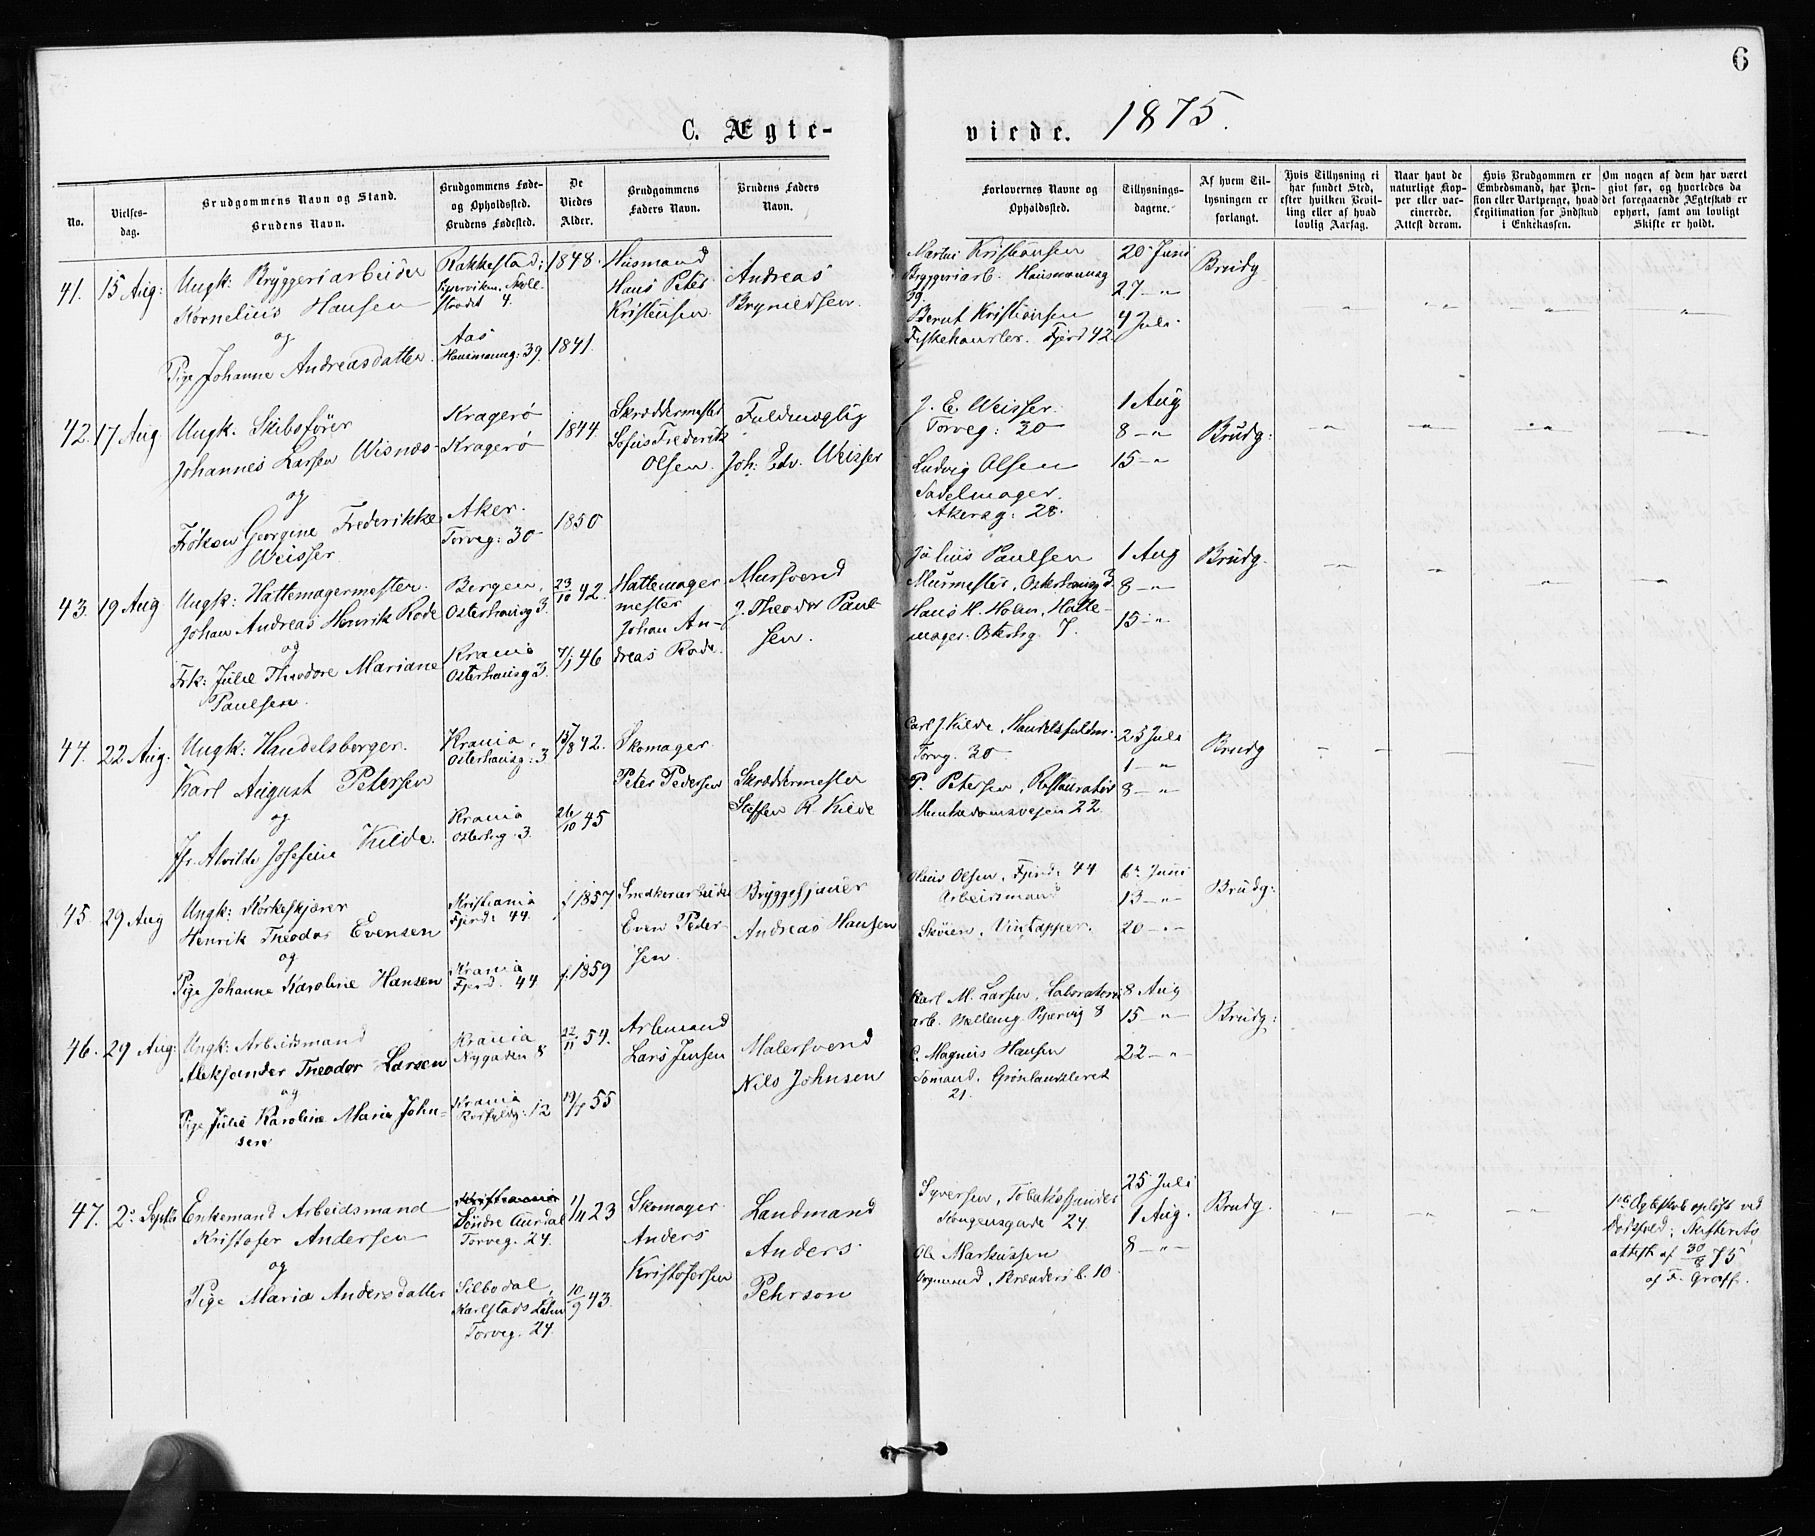 6
C. Ægte-
viede. 1875.
No.
Vielses-
dag.
Brudgommens Navn og Stand.
Brudens Navn.
Brudgommens Føde-
og Opholdssted.
Brudens Fødested.
De
Viedes
Alder.
Brudgommens
Faders Navn.
Brudens Faders
Navn.
Forlovernes Navne og
Opholdssted.
Tillysnings-
dagene.
Af hvem Til-
lysningen er
forlangt.
Hvis Tillysning ei
har fundet Sted,
efter hvilken Bevil-
ling eller af hvad
lovlig Aarsag.
Naar havt de
naturlige Kop-
per eller vac-
cinerede.
Attest derom.
Hvis Brudgommen er
Embedsmand, har Pen-
sion eller Vartpenge, hvad
Legitimation for Indskud
i Enkekassen.
Om nogen af dem har været
givt før, og hvorledes da
det foregaaende Ægteskab er
ophørt, samt om lovligt
Skifte er holdt.
41. 15 Aug:
Ungk: Bryggeriarbeider
Kornelius Hansen
og
Pige Johanne Andreasdatter.
Rakkestad;
Pipervikn.
4.
Aas
Hausmannsg: 39
1848.
1841.
Husmand
Hans Peter
Kristensen.
Andreas
Brynildsen.
Martin Kristiansen
Bryggeriarb. Hausmannsg
39.
Bernt Kristiansen
Fiskehandler. Fjerd 42.
20 Juni
27 - "
4 Juli
Brudg
42. 17 Aug
Ungk. Skibsfører
Johannes Larsen Wisnæs
og
Frøken Georgine Frederikke
Weisser
Kragerø
Kragerø
Aker.
Torveg: 30
1844
1850
Skræddermester
Sofus Frederik
Olsen.
Fuldmægtig
Joh: Edv. Weisser
J. E. Weisser.
Torveg: 30
Ludvig Olsen
Sadelmager.
Akersg: 28.
1 Aug
8 - "
15 - "
Brudg:
43. 19 Aug
Ungk: Hattemagermester.
Johan Andreas Henrik Rode
og
Frk: Julie Theodore Mariane
Paulsen.
Bergen,
Osterhausg 3.
Krania
Osterhausg 3.
23/10 42.
7/1 46
Hattemager
mester
Johan An-
dreas Rode.
Mursvend
J. Theodor Paul-
sen.
Julius Paulsen
Murmester, Osterhausg 3.
Hans H. Holm, Hatte-
mager. Osterhg. 7.
1 Aug
8 - "
15 - "
Brudg.
44. 22 Aug:
Ungk: Handelsborger.
Karl August Petersen
og
Jfr. Alvilde Josefine Kilde.
Krania,
Osterhausg: 3
Krania
Osterhg: 3.
15/8 42.
26/10 45
Skomager
Peter Pedersen
Skræddermester
Steffen R. Kilde
Carl J. Kilde, Handelsfuldm.
Torvg. 30
P. Petersen, Restauratør
Munkedamsveien 22.
25 Juli
1 - "
8 - "
Brudg
45. 29 Aug
Ungk: Korkeskjærer
Henrik Theodor Evensen
og
Pige Johanne Karoline Hansen
Kristiania
Fjerd: 44.
Krania
Fjerd. 44
f 1857
f. 1859
Snedkerarbeider
Even Peder-
sen.
Bryggesjauer
Andreas Hansen
Olaus Olsen, Fjerd: 44
Arbeidsmand
Skøien, Vintapper.
6te Juni
13 - "
20 - "
Brudg:
46. 29 Aug:
Ungk: Arbeidsmand
Aleksander Theodor Larsen
og
Pige Julie Karoline Maria John-
sen
Krania
Nygaden 8
Krania
12
22/11 54.
55
Arbmand
Lars Jensen
Malersvend
Nils Johnsen
Karl M. Larsen, Laboratorie
arb. Pipervig 8
C. Magnus Hansen
Sømand, Grønlandsleret
21.
8 Aug
15 - "
22 - "
Brudg:
47. 2: Septbr
Enkemand Arbeidsmand
Kristofer Andersen
og
Pige Maria Andersdatter
Kristiania
Søndre Aurdal
Torveg. 24.
Silbodal,
Karlstads Lehn
Torveg. 24.
1/4 23
10/9 43.
Skomager
Anders
Kristofersen
Landmand
Anders
Pehrson
Syversen, Tobaksspinder
Kongensgade 24
Ole Markussen
10
25 Juli
1 Aug.
8 - "
Brudg.
1ste Ægteskab opløst ved
Dødsfald; Skifteretts
attest af 30/8 75
af F. Græff.